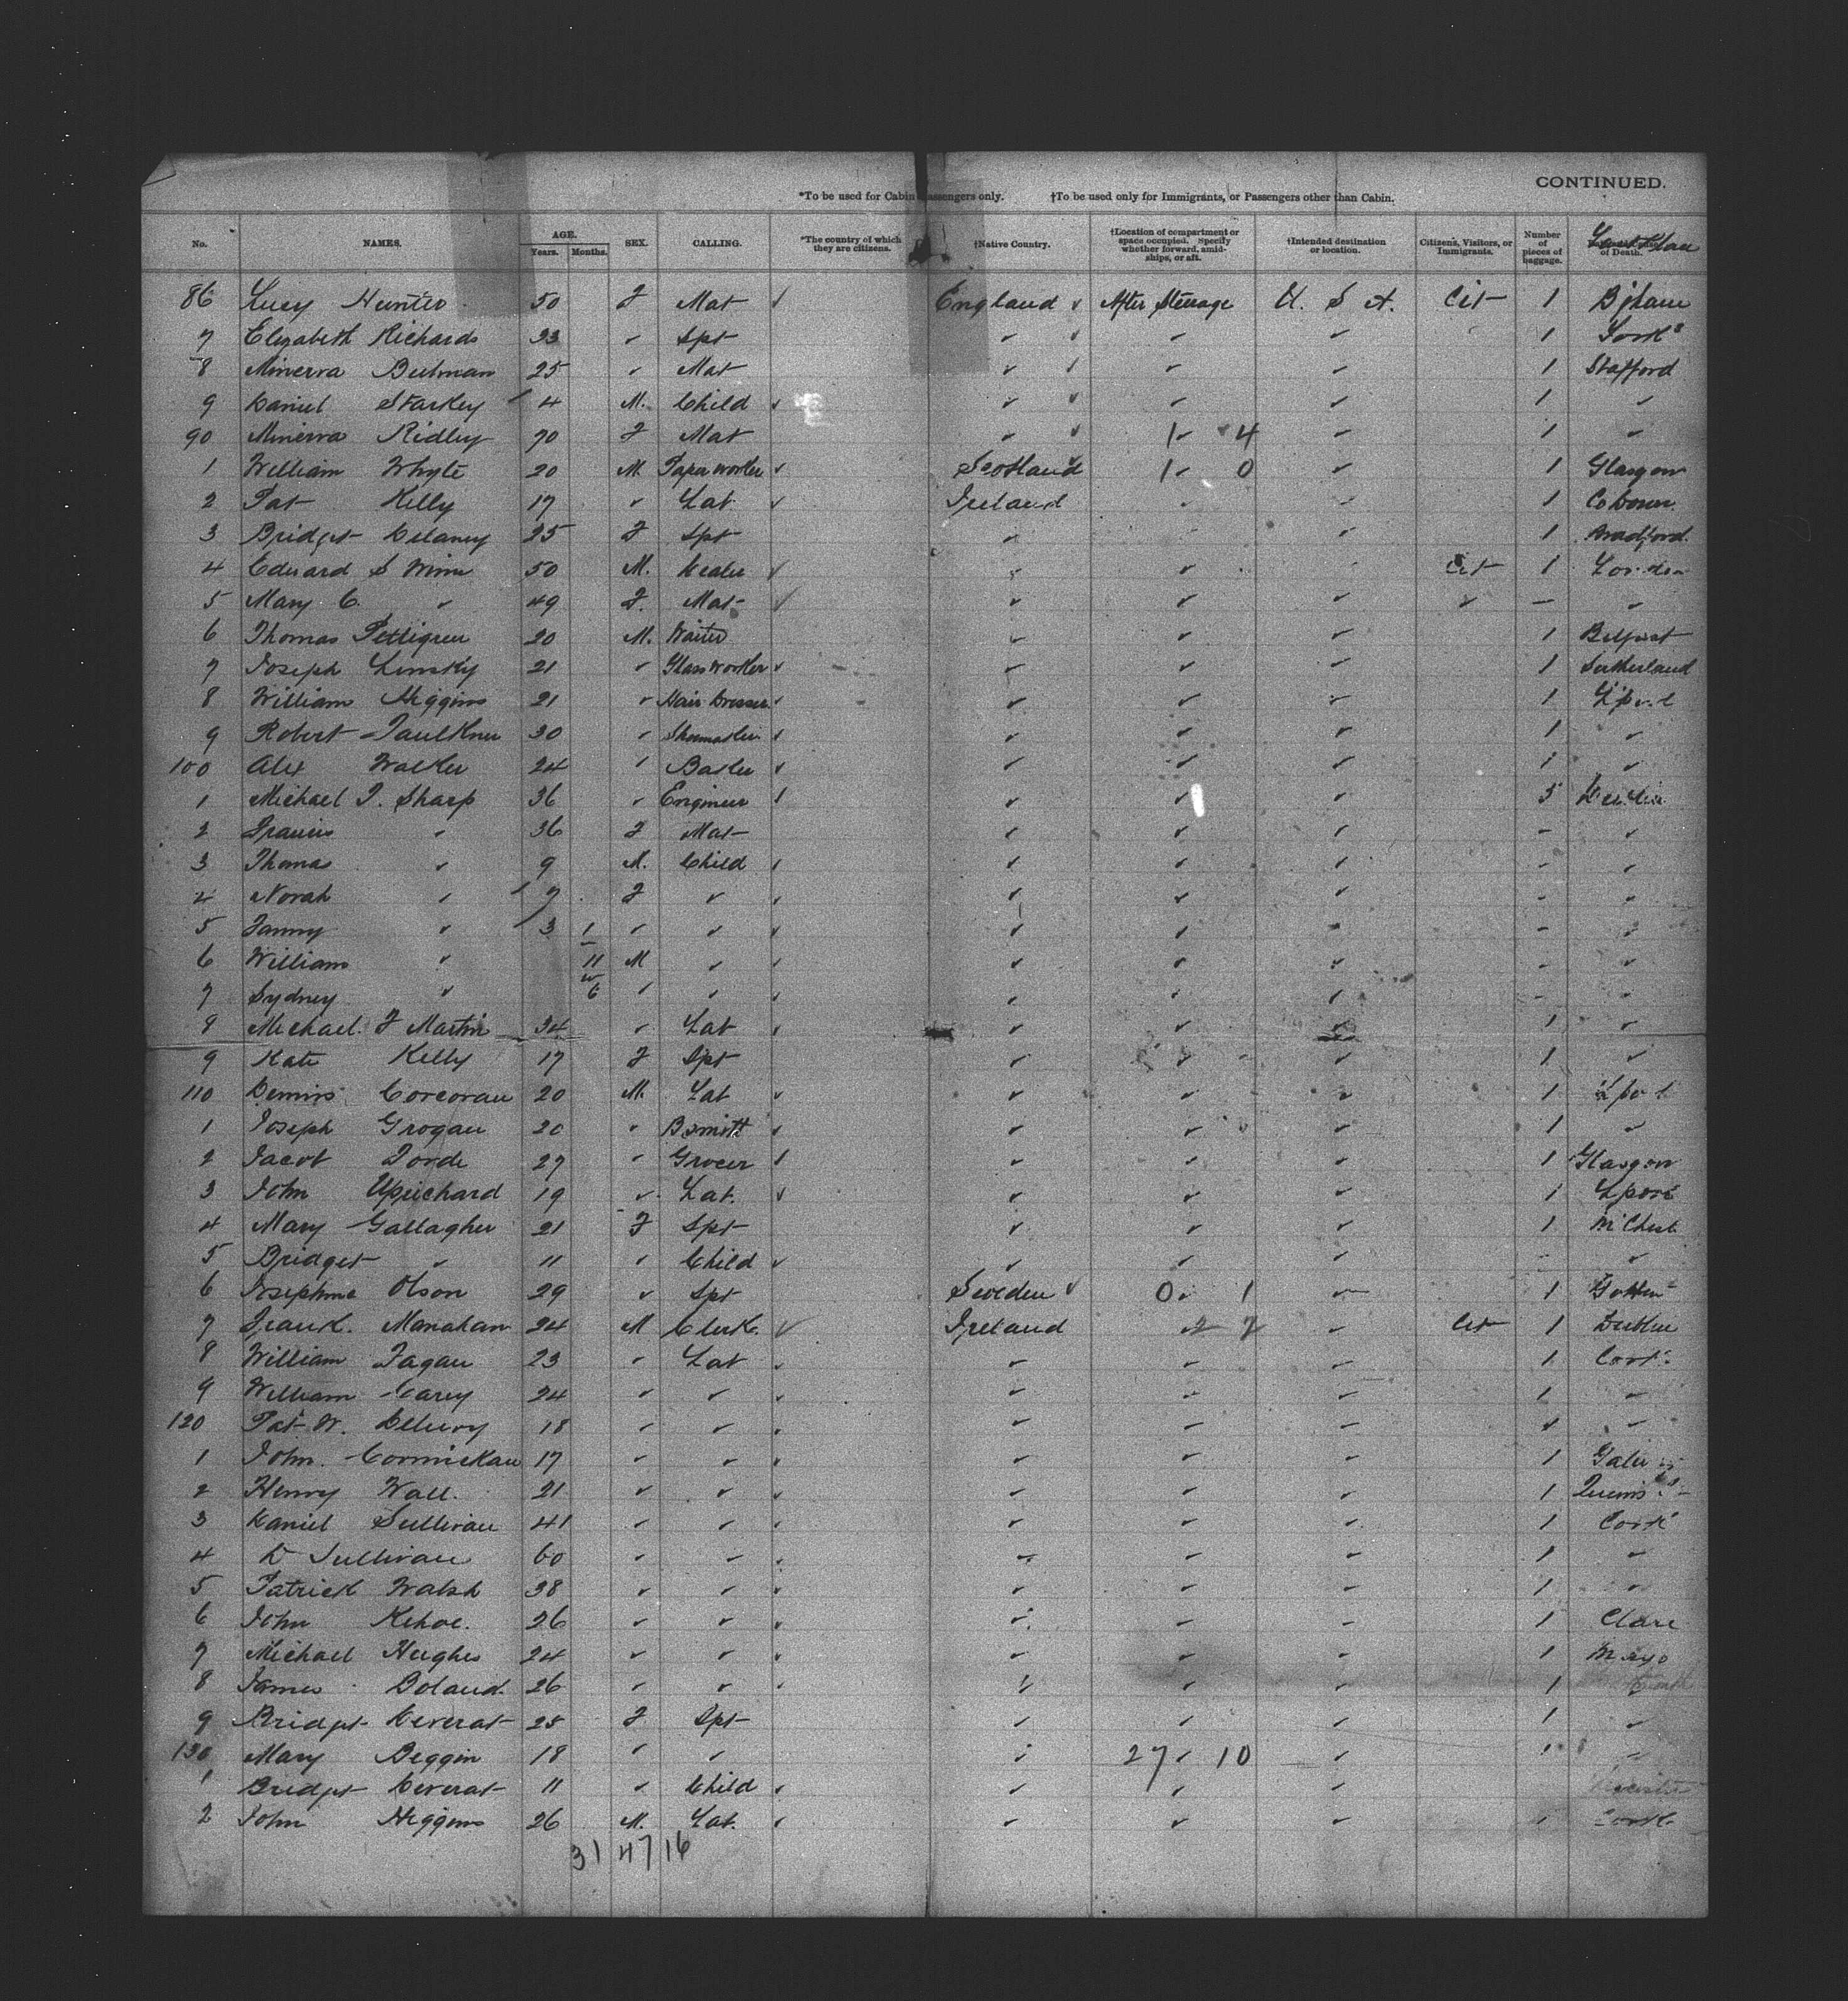 CONTINUED.
*To be used for Cabin Passengers only. †To be used only for Immigrants, or Passengers other than Cabin.
No. NAMES. AGE. Years. Months. SEX. CALLING. *The country of which they are citizens. †Native Country. †Location of compartment or space occupied. Specify whether forward, amidships, or aft. †Intended destination or location. Citizens, Visitors, or Immigrants. Number of pieces of baggage. of Death.
86 Lucy Hunter 50 F Mat ✓ England ✓ After Steerage U. S. A. Cit 1 B'ham
7 Elizabeth Richards 23 ✓ Spt ✓ ✓ ✓ ✓ 1
8 Minerva 25 ✓ Mat ✓ ✓ ✓ ✓ 1 Stafford
9 Daniel Starkey 4 M. Child ✓ ✓ ✓ ✓ ✓ 1 ✓
90 Minerva Ridley 70 F Mat ✓ ✓ 1 ✓ 4 ✓ 1 ✓
1 William Whyte 20 M. Paper worker ✓ Scotland 1 ✓ 0 ✓ 1 Glasgow
2 Pat Kelly 17 ✓ Lab ✓ Ireland 1 Co Down
3 Bridget Delaney 25 F Spt ✓ ✓ 1 Bradford
4 Edward S Winn 50 M. Dealer ✓ ✓ ✓ Cit 1 London
5 Mary C. ✓ 49 F. Mat ✓ ✓ ✓ ✓ ✓ — ✓
6 Thomas Pettigrew 20 M. Waiter ✓ ✓ ✓ 1 Belfast
7 Joseph Linsky 21 ✓ Glass worker ✓ ✓ ✓ ✓ 1 Sutherland
8 William Higgins 21 ✓ Hair Dresser ✓ ✓ ✓ ✓ 1 L'pool
9 Robert Faulkner 30 ✓ Shoemaker ✓ ✓ ✓ ✓ 1 ✓
100 Alex Walker 24 ✓ Baker ✓ ✓ ✓ ✓ 1 ✓
1 Michael J. Sharp 36 ✓ Engineer ✓ ✓ ✓ 5
2 Francis ✓ 36 F Mat ✓ ✓ ✓ - ✓
3 Thomas ✓ 9 M. Child ✓ ✓ ✓ ✓ - ✓
4 Norah ✓ 7 F ✓ ✓ ✓ ✓ ✓ - ✓
5 Fanny ✓ 3 1 ✓ ✓ ✓ ✓ ✓ -
6 William ✓ 11 M ✓ ✓ ✓ ✓ ✓ - ✓
7 Sydney ✓ 6 ✓ ✓ ✓ ✓ ✓ ✓ - ✓
8 Michael F Martin 34 ✓ Lab ✓ ✓ ✓ ✓ 1 ✓
9 Kate Kelly 17 F Spt ✓ ✓ ✓ 1 ✓
110 Dennis Corcoran 20 M. Lab ✓ ✓ ✓ ✓ 1 L'pool
1 Joseph Grogan 20 ✓ B smith ✓ ✓ ✓ ✓ 1 ✓
2 Jacob 27 ✓ Grocer ✓ ✓ ✓ 1 Glasgow
3 John Uprichard 19 ✓ Lab. ✓ ✓ ✓ ✓ 1 L'pool
4 Mary Gallagher 21 F Spt ✓ ✓ ✓ 1 M'Chest
5 Bridget ✓ 11 ✓ Child ✓ ✓ ✓ ✓ - ✓
6 Josephine Olson 29 ✓ Spt Sweden ✓ 0 ✓ 1 ✓ 1
7 Frank Manahan 24 M Clerk ✓ Ireland 2 7 ✓ Cit 1 Dublin
8 William Fagan 23 ✓ Lab ✓ ✓ ✓ ✓ 1 Cork
9 William Carey 24 ✓ ✓ ✓ ✓ ✓ ✓ 1 ✓
120 Pat W. 18 ✓ ✓ ✓ ✓ ✓ ✓ ✓
1 John 17 ✓ ✓ ✓ ✓ ✓ ✓ 1 Galway
2 Henry Wall 21 ✓ ✓ ✓ ✓ ✓ ✓ 1 Queens
3 Daniel Sullivan 41 ✓ ✓ ✓ ✓ ✓ ✓ 1 Cork
4 D Sullivan 60 ✓ ✓ ✓ ✓ ✓ ✓ 1 ✓
5 Patrick Walsh 38 ✓ ✓ ✓ ✓ ✓ ✓ 1 ✓
6 John Kehoe 26 ✓ ✓ ✓ ✓ ✓ ✓ 1 Clare
7 Michael Hughes 24 ✓ ✓ ✓ ✓ ✓ ✓ 1 Mayo
8 James Boland 26 ✓ ✓ ✓ ✓ ✓ ✓ 1
9 Bridget 25 F Spt ✓ ✓ ✓ 1 ✓
130 Mary Beggin 18 ✓ ✓ ✓ 27 ✓ 10 ✓ 1 ✓
1 Bridget 11 ✓ Child ✓ ✓ ✓ ✓
2 John Higgins 26 M. Lab. ✓ ✓ ✓ ✓ 1 Cork
31 47 16